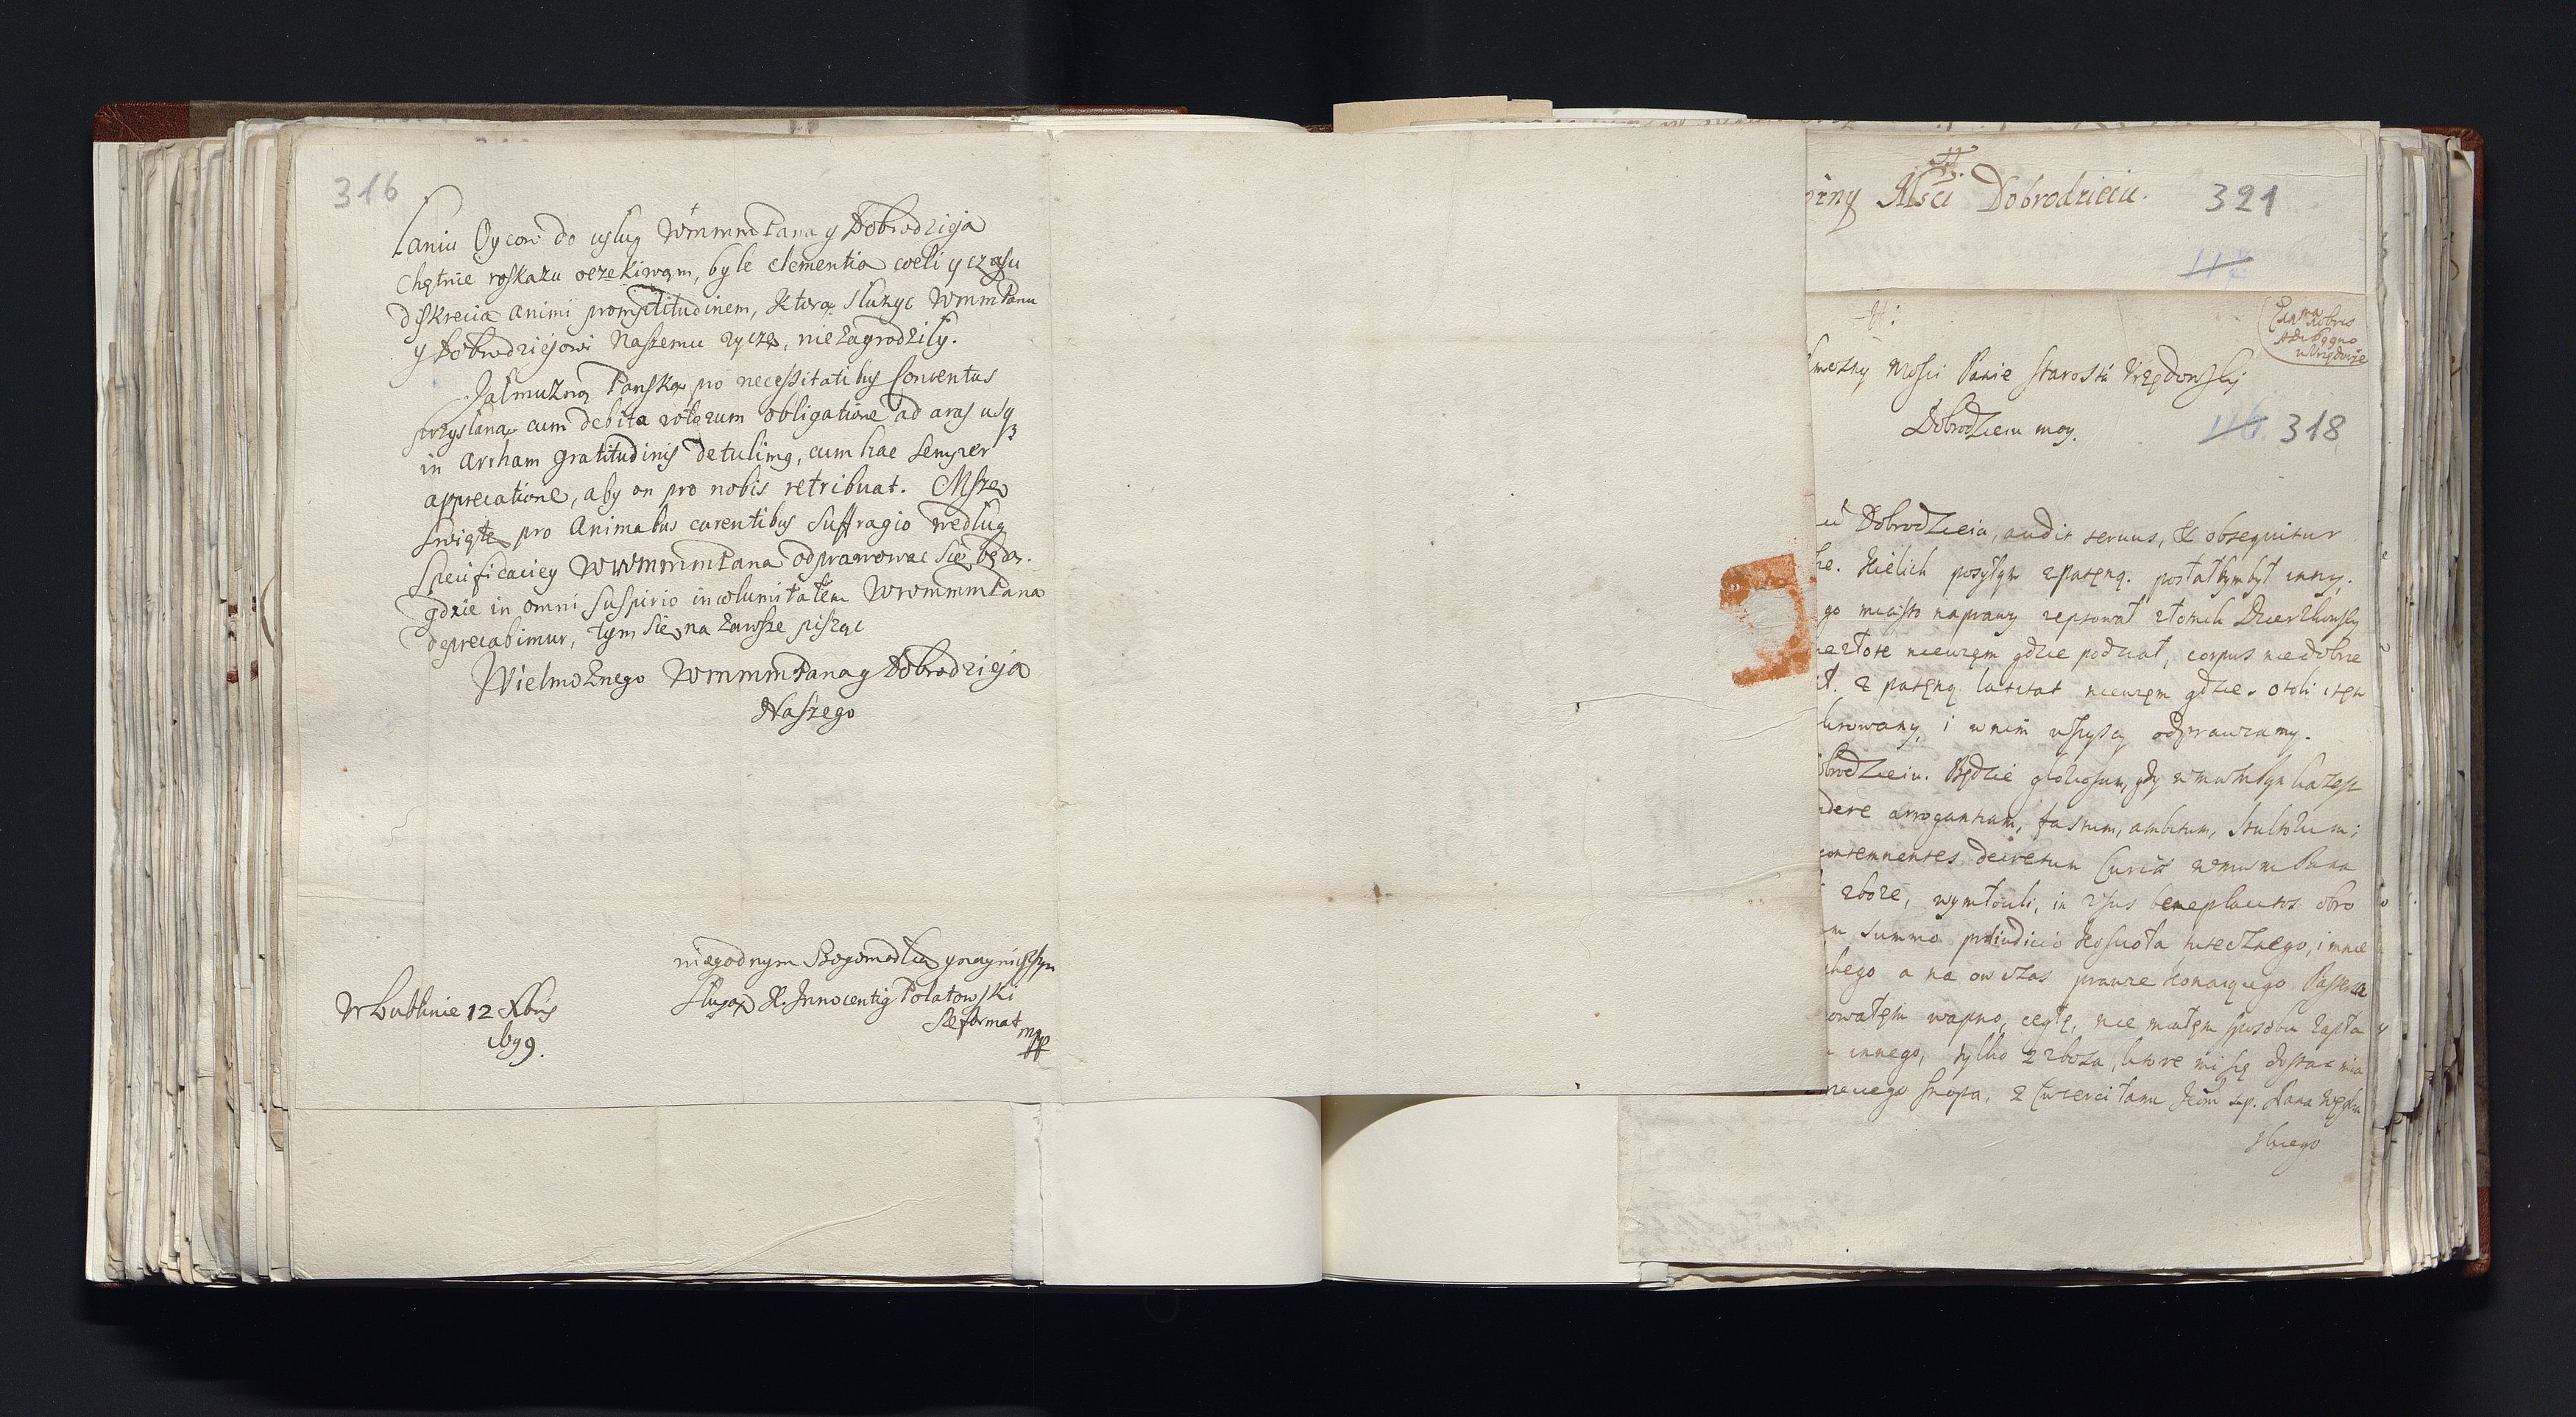 316
łaniu Oycow do usług WmmmPana y Dobrodzieja
chętnie roskazu oczekiwam, byle clementia coeli y czasu
diskrecia animi promptitudinem, którą służyc WmmPanu
y Dobrodziejowi Naszemu zyczę, nie zagrodziły.
Jalmużną Pańską pro necessitatibus Conventus
przysłaną cum debita votorum obligatione ad aras usq3
in arrham gratitudinis detulimq, cum hac semper
apprecatione, aby on pro nobis retribuat. Msze
Swięte pro Animabus carentibus suffragio według
specificaciey WWmmmPana odprawowac się będą.
gdzie in omni suspirio incolumitatem WWmmmPana
deprecabimur, tym się na zawsze pisząc
Wielmożnego WmmmPana y Dobrodzieja
Naszego
niegodnym Bogomodlcą y nayniższym
sługą X. Innocentig Polatowski
Reformat mpp
W Lublinie 12 Xbris
1699.
Msci Dobrodzieiu.
321
Mosci Panie Starosta Urzędowsky
Dobrodzieiu moy.
116 318
Dobrodzieia, audit servus, & obsequitur
Kielich posyłąm z pateną. posłałbym był inny,
go miasto naprawy zepsował złotnik Dzierzkowsky
nieuzęm gdzie podział, corpus nie dobrze
z pateną latitat nieuzęm gdzie. otoli ten
i w nim wszyscy odprawiamy.
Będzie gloriosum, gdy
arrogantiam, fastum, ambitum, stultorum;
contemnentes decretum Curiae Pana
zboże, wymłocili, in usus beneplacitos obro
summo priudicio Kosciola tutecznego, i mnie
a na ow czas prawie konaiącego Pasterza
wapno, cegłę, nie miałem sposobu zapła
innego, tylko z zboża, ktore mi się dostac mia
snopa, z Cwierci łanu Pana
skiego